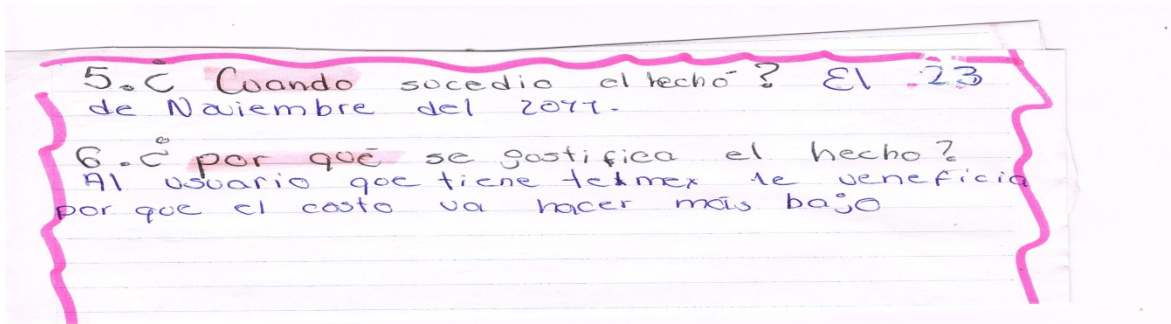 5.¿ Cuando sucedio el hecho? El 23
de Noviembre del 2011.
6.¿ por qué se gostifica el hecho?
Al usuario que tiene telmex le veneficia
por que el costo va hacer más bajo